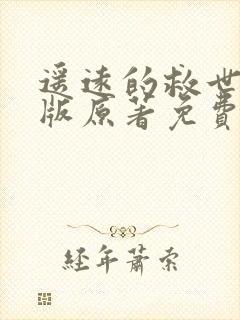 遥远的救世
版原著免费
经年萧索